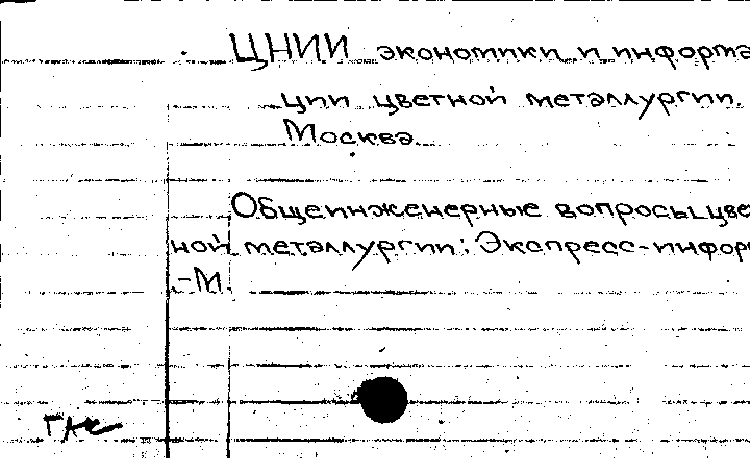 ЦНИИ экономики и информа
ции цветной металлургии.
Москва
Общеинженерные вопросы цве
ной металлургии: Экспресс-инфор
.-М.
ГАК